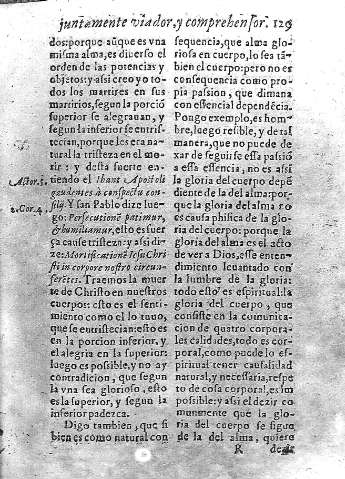 juntamente viador, y comprehensor. 129
dos: porque aũque es vna
misma alma, es diuerso el
orden de las potencias y
objetos: y assi creo yo to-
dos los martires en sus
martirios, segun la porció
superior se alegrauan, y
segun la inferior se entris-
tecian, porque les era na-
tural la tristeza en el mo-
rir: y desta suerte en-
tiendo el Ibant Apostoli
gaudentes à conspectu con-
silij. Y san Pablo dize lue-
go: Persecutionẽ patimur,
& humiliamur, esto es fuer
ça cause tristeza: y assi di-
ze: Mortificationẽ Iesu Chri
sti in corpore nostro circun-
ferẽtes. Traemos la muer
te de Christo en nuestros
cuerpos: esto es el senti-
miento como el lo tuuo,
que se entristecian: esto es
en la porcion inferior, y
el alegria en la superior:
luego es possible, y no ay
contradicion, que segun
la vna sea glorioso, esto
es la superior, y segun la
inferior padezca.
Digo tambien, que si
bien es como natural con
Actor. 5.
2. Cor. 4.
sequencia, que alma glo-
riosa en cuerpo, lo sea tã-
bien el cuerpo: pero no es
consequencia como pro-
pia passion, que dimana
con essencial dependẽcia.
Pongo exemplo, es hom-
bre, luego resible, y de tal
manera, que no puede de
xar de seguirse essa passió
a essa essencia, no es assi
la gloria del cuerpo depẽ
diente de la del alma: por-
que la gloria del alma no
es causa phisica de la glo-
ria del cuerpo: porque la
gloria del alma es el acto
de ver a Dios, esse enten-
dimiento leuantado con
la lumbre de la gloria:
todo esto es espiritual: la
gloria del cuerpo, que
consiste en la comunica-
cion de quatro corpora-
les calidades, todo es cor-
poral, como puede lo es-
piritual tener causalidad
natural, y necessaria, respe
to de cosa corporal, es im
possible: y assi el dezir co
munmente que la glo-
ria del cuerpo se sigue
de la del alma, quiere
R dezir